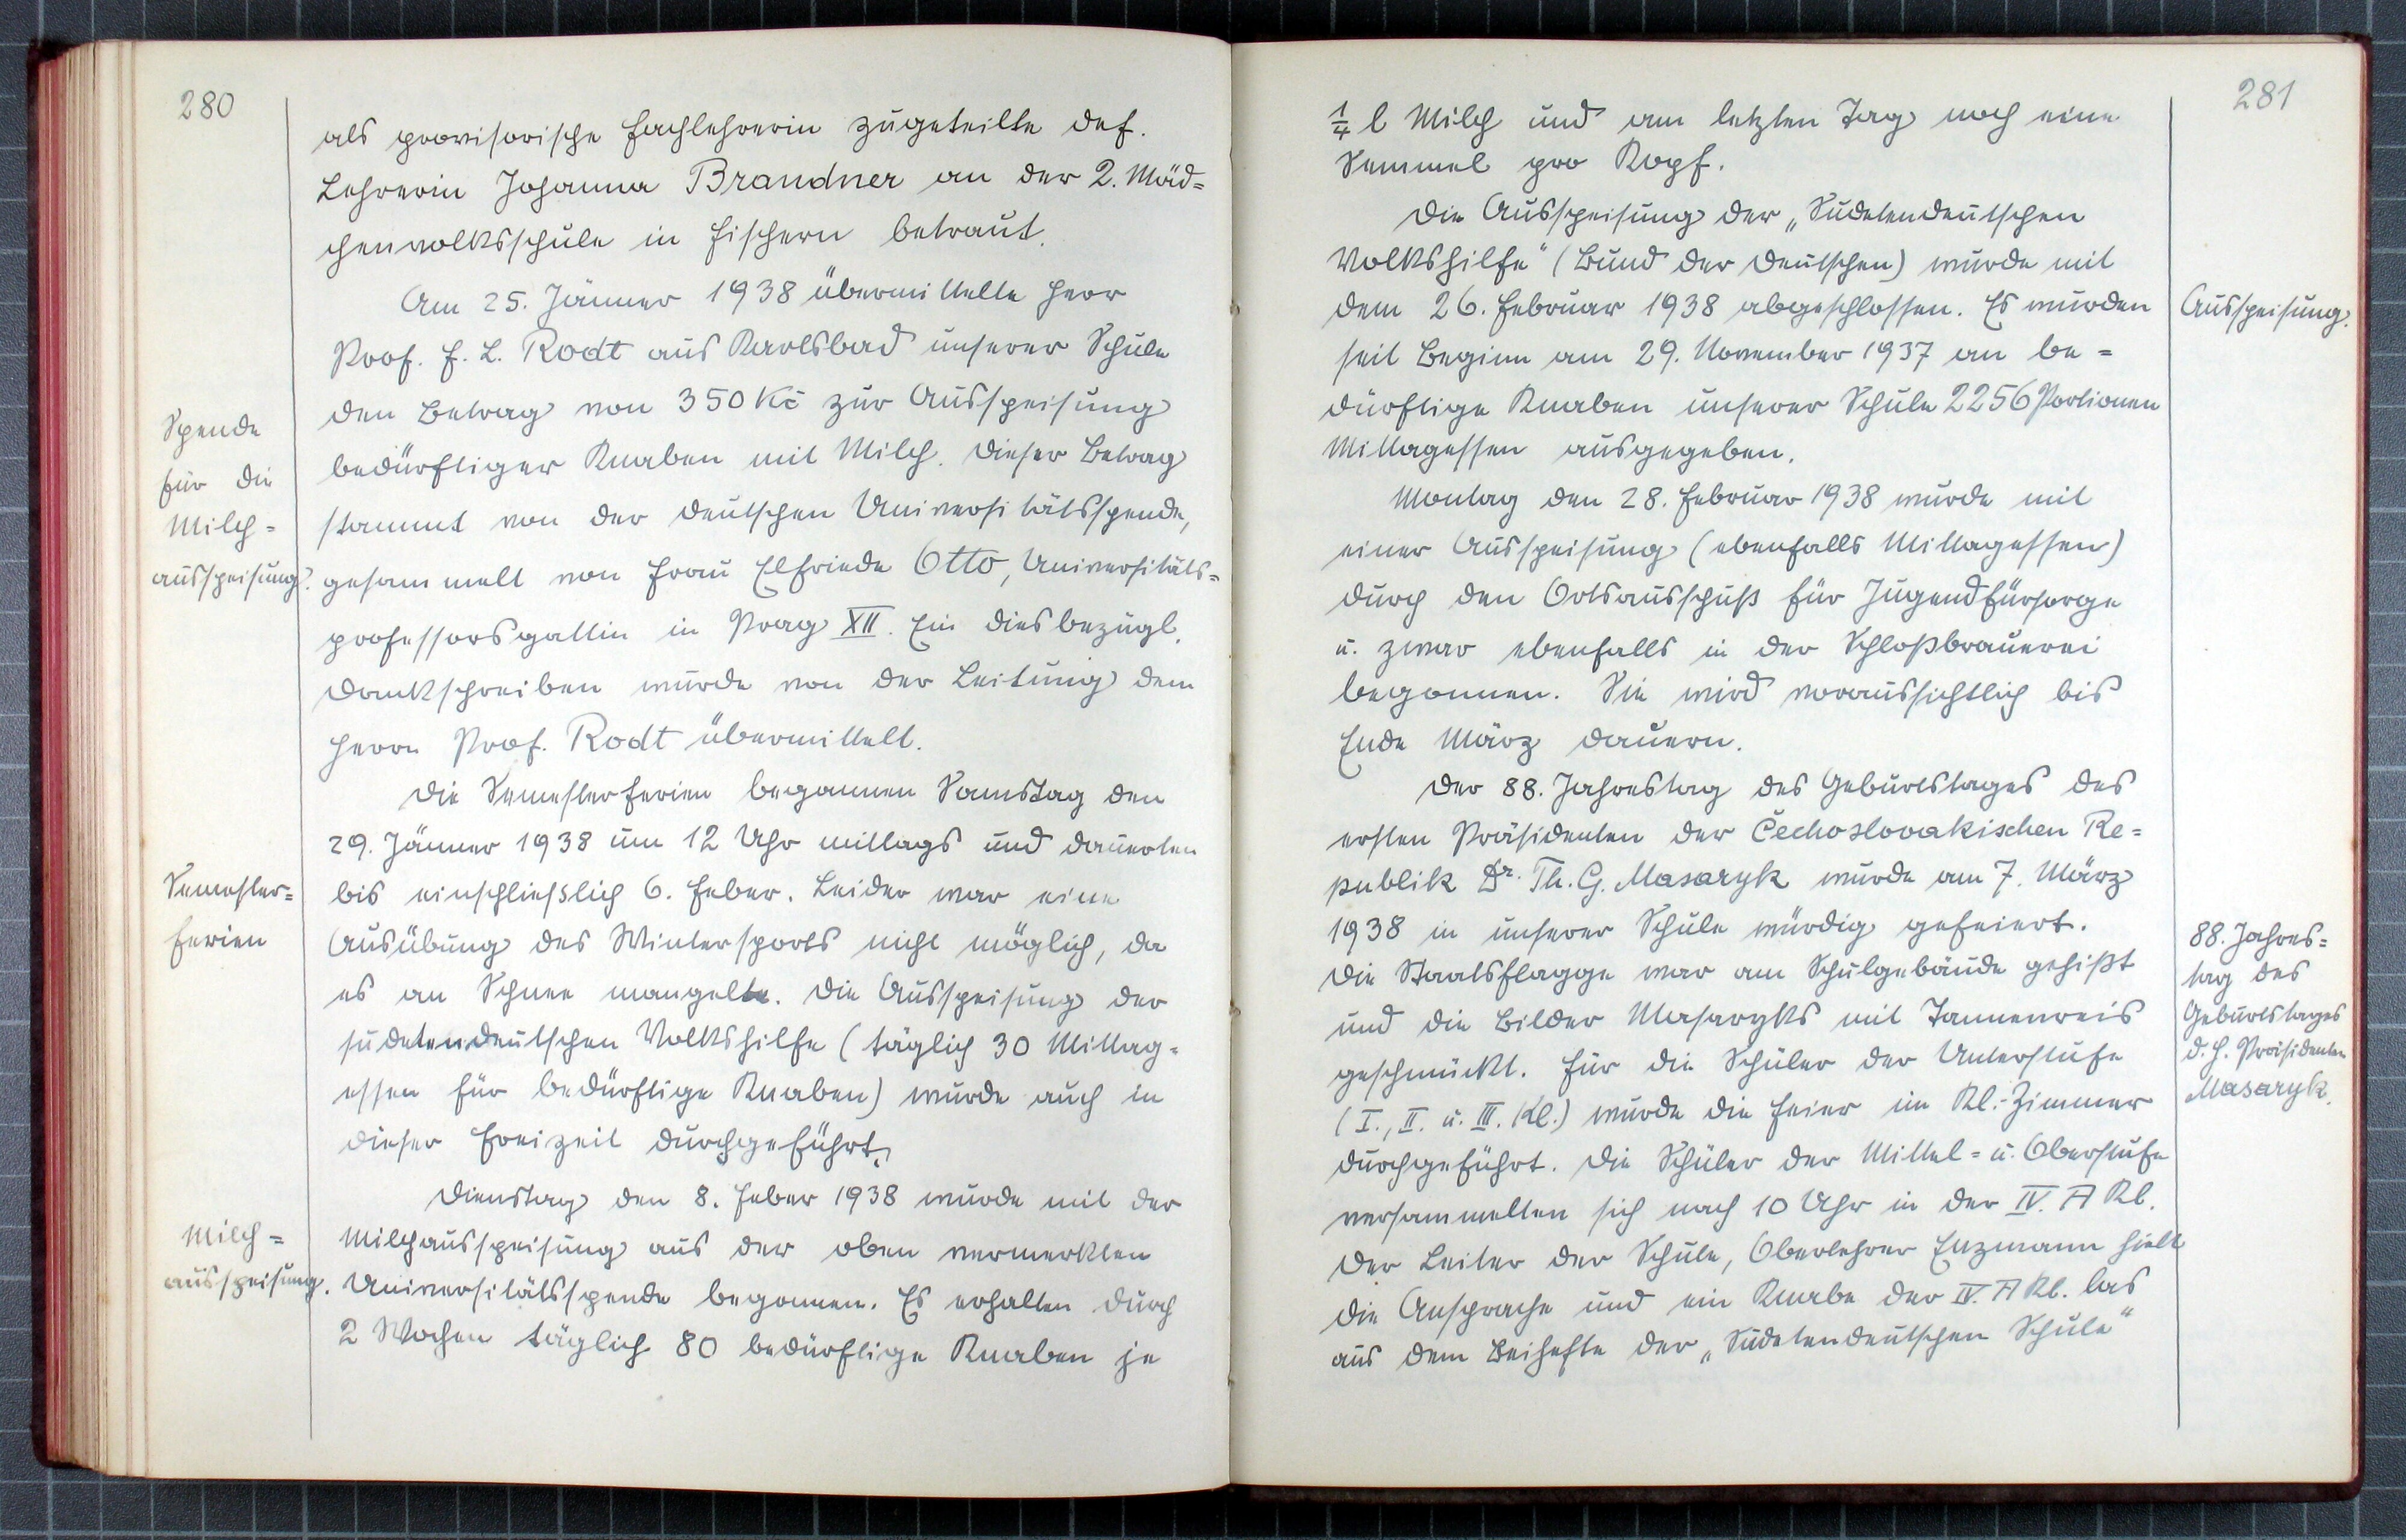 280
als provisorische Fachlehrerin zugeteilte def.
Lehrerin Johanna Brandner an der 2. Mäd=
chenvolksschule in Fischern betraut.
Am 25. Jänner 1938 übermittelte Herr
Prof. F. L. Rodt aus Karlsbad unserer Schule
den Betrag von 350 Kč zur Ausspeisung
bedürftiger Knaben mit Milch. Dieser Betrag
stammt von der deutschen Universitätsspende,
gesammelt von Frau Elfriede Otto, Universitäts=
professorsgattin in Prag XII. Ein diesbezügl.
Dankschreiben wurde von der Leitung dem
Herrn Prof. Rodt übermittelt.
Spende
für die
Milch=
ausspeisung.
Die Semesterferien begannen Samstag den
29. Jänner 1938 um 12 Uhr mittags und dauerten
bis einschließlich 6. Feber. Leider war eine
Ausübung des Wintersports nicht möglich, da
es an Schnee mangelte. Die Ausspeisung der
sudetendeutschen Volkshilfe (täglich 30 Mittag=
essen für bedürftige Knaben) wurde auch in
dieser Freizeit durchgeführt.
Semester=
ferien
Dienstag den 8. Feber 1938 wurde mit der
Milchausspeisung aus der oben vermerkten
Universitätsspende begonnen. Es erhalten durch
2 Wochen täglich 80 bedürftige Knaben je
Milch=
ausspeisung.
281
1/4 l Milch und am letzten Tag noch eine
Semmel pro Kopf.
Die Ausspeisung der „Sudetendeutschen
Volkshilfe" (Bund der Deutschen) wurde mit
dem 26. Februar 1938 abgeschlossen. Es wurden
seit Beginn am 29. November 1937 an be=
dürftige Knaben unserer Schule 2256 Portionen
Mittagessen ausgegeben.
Ausspeisung.
Montag den 28. Februar 1938 wurde mit
einer Ausspeisung (ebenfalls Mittagessen)
durch den Ortsausschuß für Jugendfürsorge
u. zwar ebenfalls in der Schloßbrauerei
begonnen. Sie wird voraussichtlich bis
Ende März dauern.
Der 88. Jahrestag des Geburtstages des
ersten Präsidenten der Čechoslovakischen Re=
publik Dr. Th. G. Masaryk wurde am 7. März
1938 in unserer Schule würdig gefeiert.
Die Staatsflagge war am Schulgebäude gehißt
und die Bilder Masaryks mit Tannenreis
geschmückt. Für die Schüler der Unterstufe
(I., II. u. III. Kl.) wurde die Feier im Kl.-Zimmer
durchgeführt. Die Schüler der Mittel= u. Oberstufe
versammelten sich nach 10 Uhr in der IV. A Kl.
Der Leiter der Schule, Oberlehrer Enzmann hielt
die Ansprache und ein Knabe der IV. A Kl. las
aus dem Beihefte der „Sudetendeutschen Schule"
88. Jahres=
tag des
Geburtstages
d. H. Präsidenten
Masaryk.